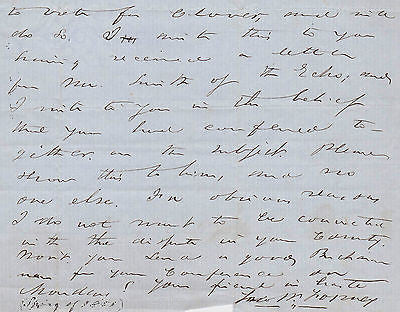 to vote for Glover, and will
do so. I write this to you
having received a letter
from Mr. Smith of the Echo, and
I write to you in the belief
that you had conferred to-
gether on the subject. Please
show this to him, and no
one else. For obvious reasons
I do not want to be connected
with the dispute in your County.
Won't you send a good Buchanan
man for your Conference on
Monday? Your friend in haste
(Spring of 1851) Jno. W. Forney